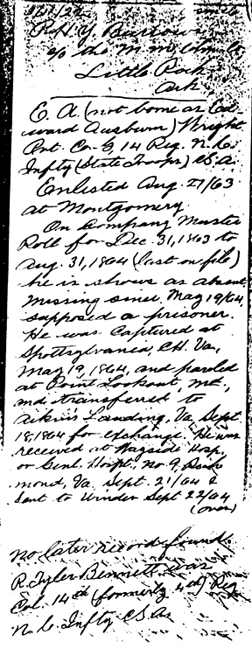 R. H. Y.
c/o the M. M.
Little Rock
Ark
E. A. (not borne as Ed-
ward Ausburn) Wright
Pvt. Co. G 14 Reg. N.C.
Infty (State Troops) CSA.
Enlisted Aug. 27/63
at Montgomery.
On Company Muster
Roll for Dec. 31, 1863 to
Aug. 31, 1864 (last on file)
he is shown as absent
missing since May 19/64
supposed a prisoner.
He was captured at
Spottsylvania, C.H. Va,
May 19, 1864, and paroled
at Point Lookout, Md.,
and transferred to
Aikin's Landing, Va. Sept
18, 1864 for exchange. He was
received at Wayside Hosp,
or Genl. Hospt., No. 9. Rich-
mond, Va. Sept. 21/64 &
sent to Winder Sept 22/64
(over)
No later record found.
R. Tyler Bennett was
Col. 14th (formerly 4th) Reg
N. C. Infty C.S.A.